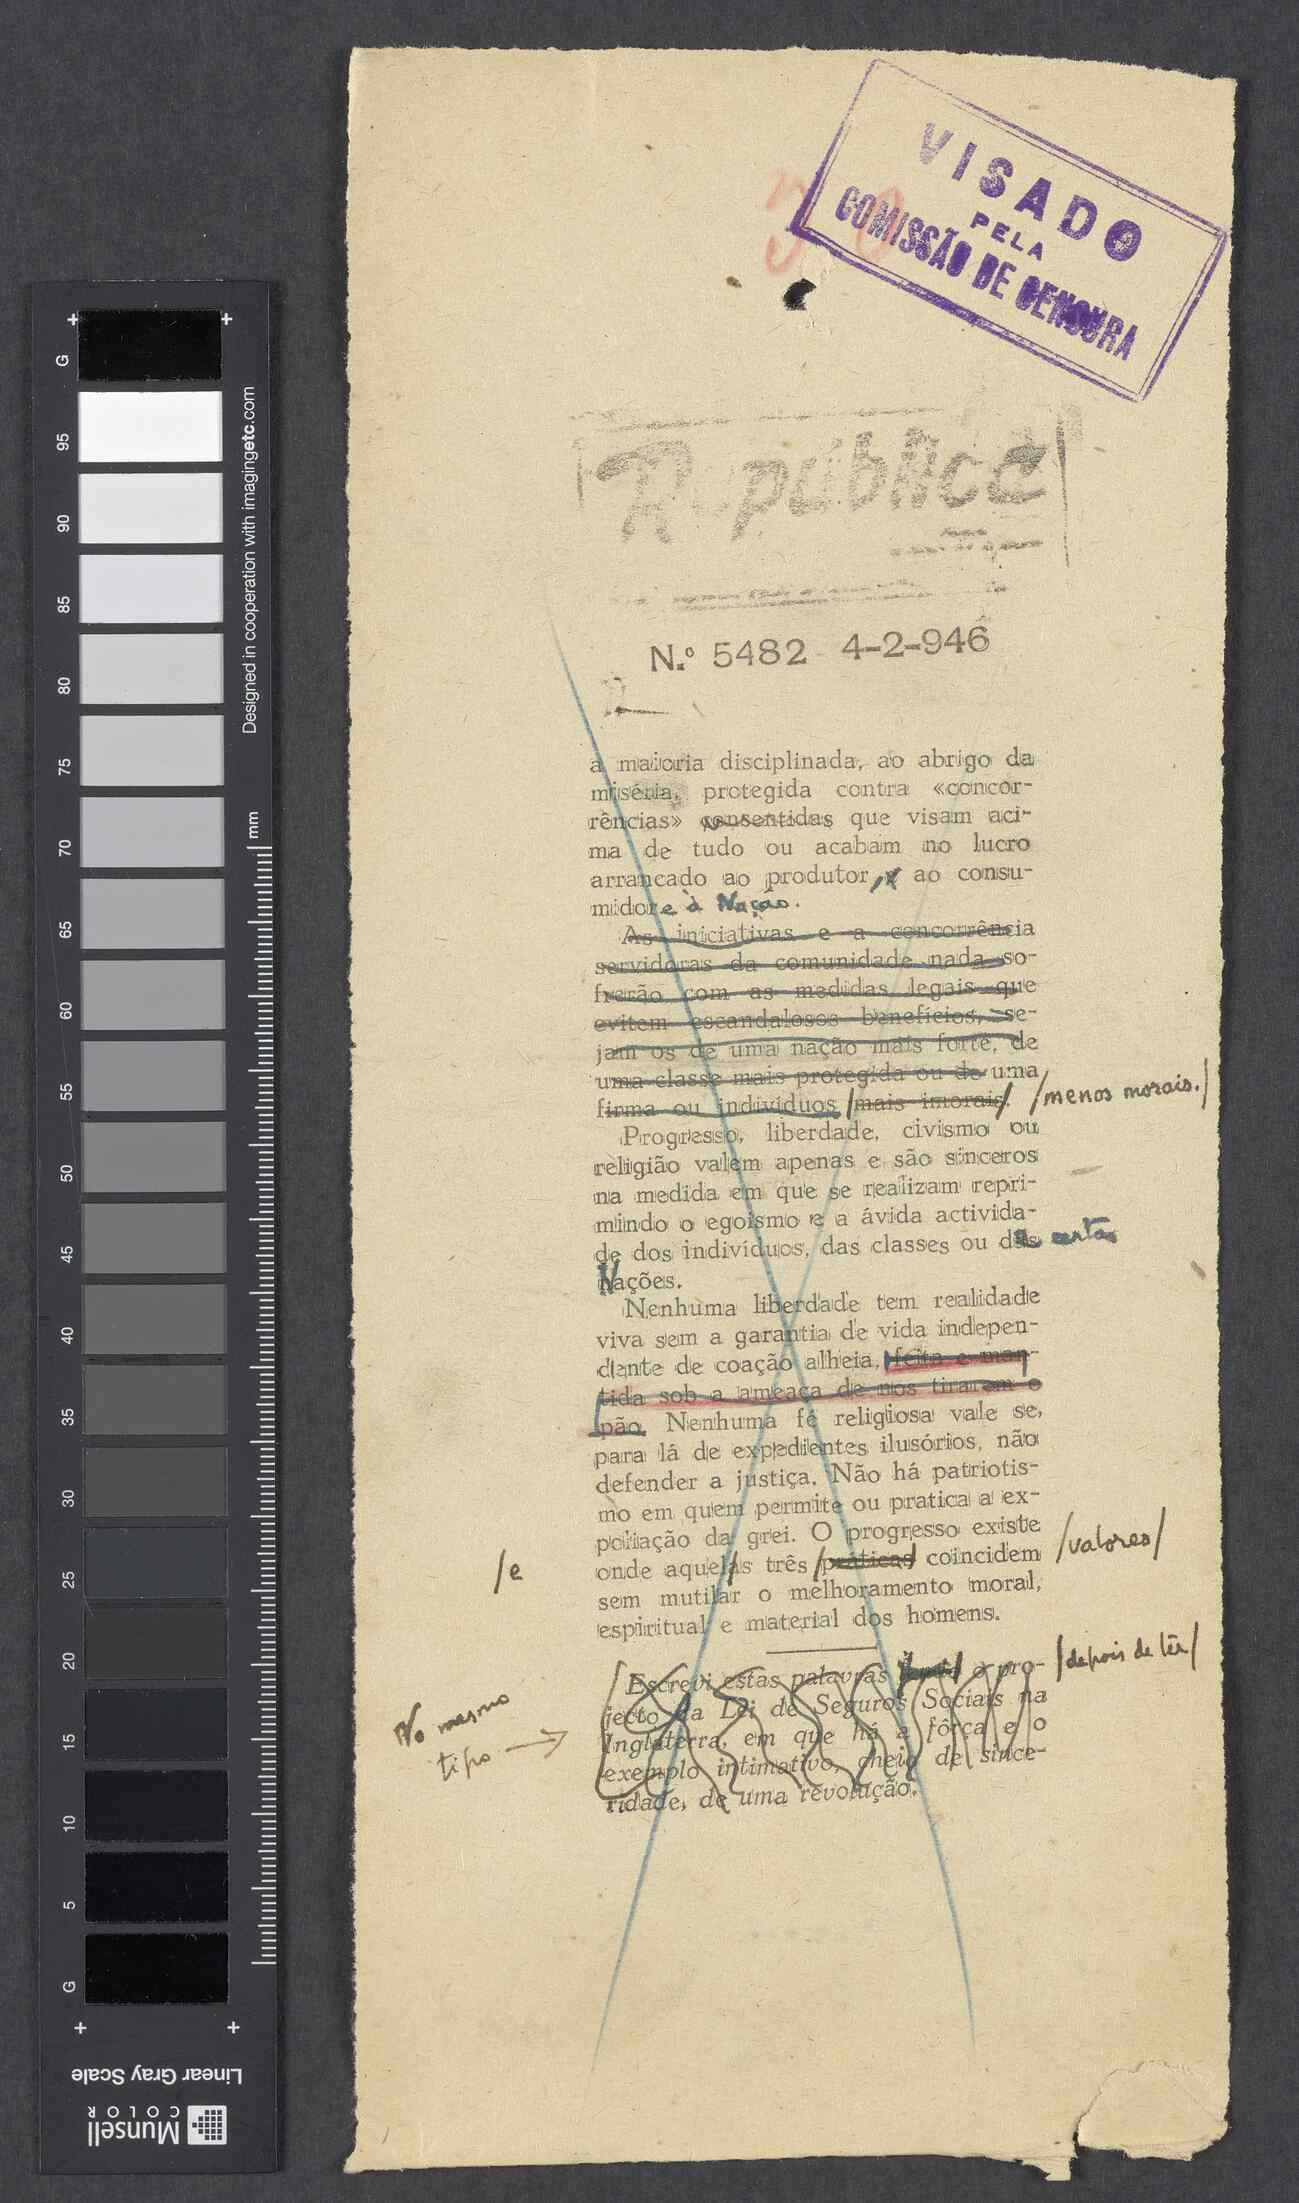 VISADO
PELA
COMISSÃO DE CENSURA
República
N.º 5482 4-2-946
a maioria disciplinada, ao abrigo da
miséria, protegida contra «concor-
rências» consentidas que visam aci-
ma de tudo ou acabam no lucro
arrancado ao produtor, ao consu-
midor e à Nação.
As iniciativas e a concorrência
servidoras da comunidade nada so-
frerão com as medidas legais que
evitem escandalosos benefícios, se-
jam os de uma nação mais forte, de
uma classe mais protegida ou de uma
firma ou indivíduos /mais imorais/. /menos morais./
Progresso, liberdade, civismo ou
religião valem apenas e são sinceros
na medida em que se realizam repri-
mindo o egoismo e a ávida activida-
de dos indivíduos, das classes ou de certas
Nações.
Nenhuma liberdade tem realidade
viva sem a garantia de vida indepen-
dente de coação alheia, feita e man-
tida sob a ameaça de nos tirarem o
pão. Nenhuma fé religiosa vale se,
para lá de expedientes ilusórios, não
defender a justiça. Não há patriotis-
mo em quem permite ou pratica a ex-
poliação da grei. O progresso existe
/e onde aquelas três /práticas/ coincidem /valores/
sem mutilar o melhoramento moral,
espiritual e material dos homens.
Escrevi estas palavras o pro- /depois de lêr/
jecto da Lei de Seguros Sociais na
Inglaterra, em que há a fôrça e o
exemplo intimativo, cheio de since-
ridade, de uma revolução.
No mesmo
tipo →
G
95
90
85
80
75
70
65
60
55
50
45
40
35
30
25
20
15
10
5
G
mm
Designed in cooperation with imagingetc.com
Linear Gray Scale
Munsell
COLOR